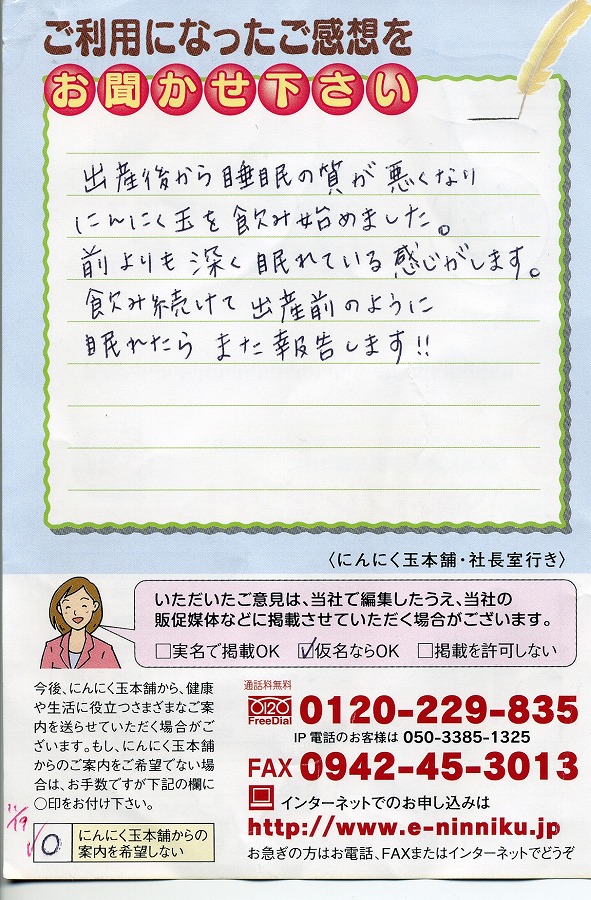 ご利用になったご感想を
お聞かせ下さい
出産後から睡眠の質が悪くなり
にんにく玉を飲み始めました。
前よりも深く眠れている感じがします。
飲み続けて出産前のように
眠れたらまた報告します!!
〈にんにく玉本舗・社長室行き〉
いただいたご意見は、当社で編集したうえ、当社の
販促媒体などに掲載させていただく場合がございます。
□実名で掲載OK ☑仮名ならOK □掲載を許可しない
今後、にんにく玉本舗から、健康
や生活に役立つさまざまなご案
内を送らせていただく場合がご
ざいます。もし、にんにく玉本舗
からのご案内をご希望でない場
合は、お手数ですが下記の欄に
○印をお付け下さい。
11/19
○ にんにく玉本舗からの
案内を希望しない
通話料無料
FreeDial 0120-229-835
IP電話のお客様は 050-3385-1325
FAX 0942-45-3013
インターネットでのお申し込みは
http://www.e-ninniku.jp
お急ぎの方はお電話、FAXまたはインターネットでどうぞ